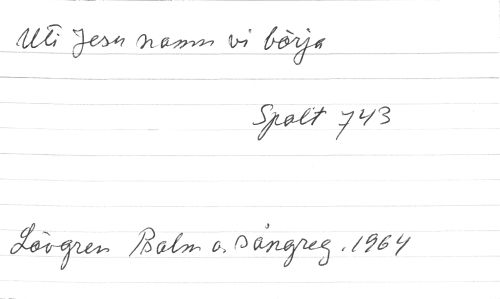 Uti Jesu namn vi börja
Spalt 743
Lövgren Psalm o. sångreg. 1964